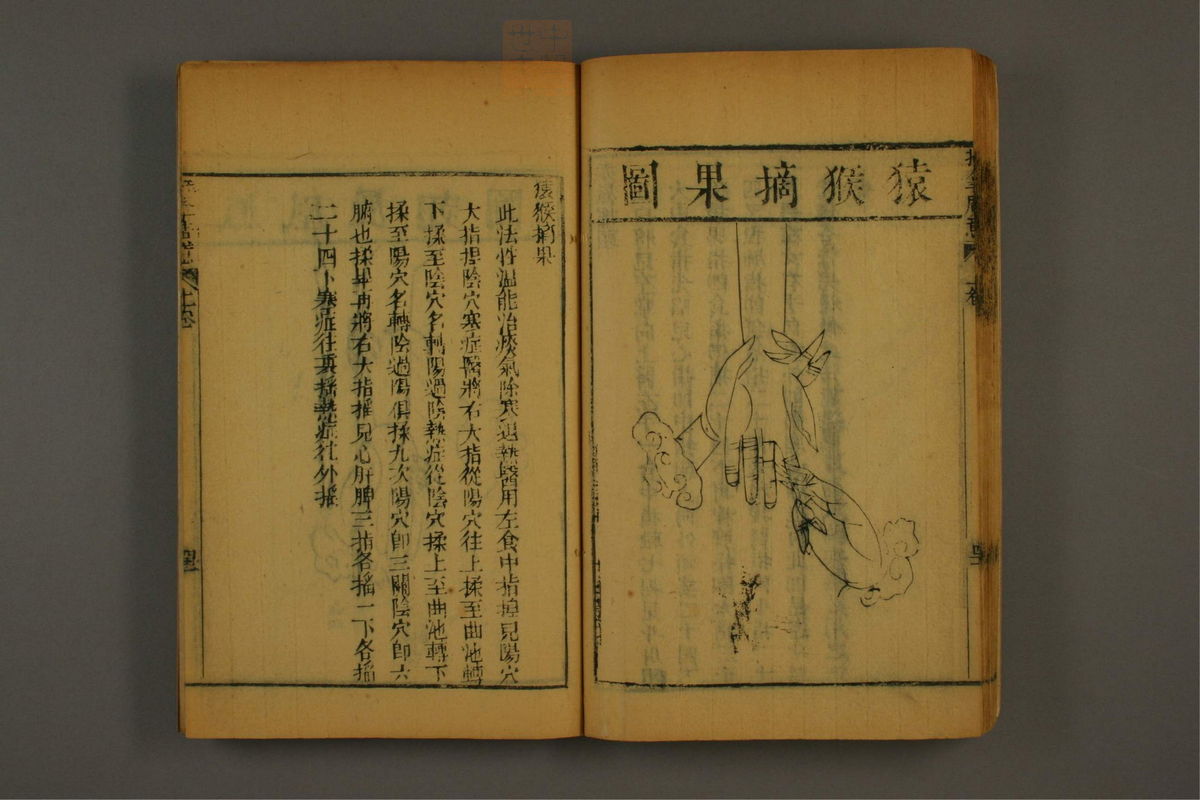 猿猴摘果圖
猿猴摘果
此法性溫能治痰氣除寒退熱醫用左食中指捏兒陽穴
大指捏陰穴寒症醫將右大指從陽穴往上揉至曲池轉
下揉至陰穴名轉陽過陰熱症從陰穴揉上至曲池轉下
揉至陽穴名轉陰過陽俱揉九次陽穴卽三關陰穴卽六
腑也揉畢再將右大指搖兒心肝脾三指各搖一下各搖
二十四下寒症往裏搖熱症往外搖